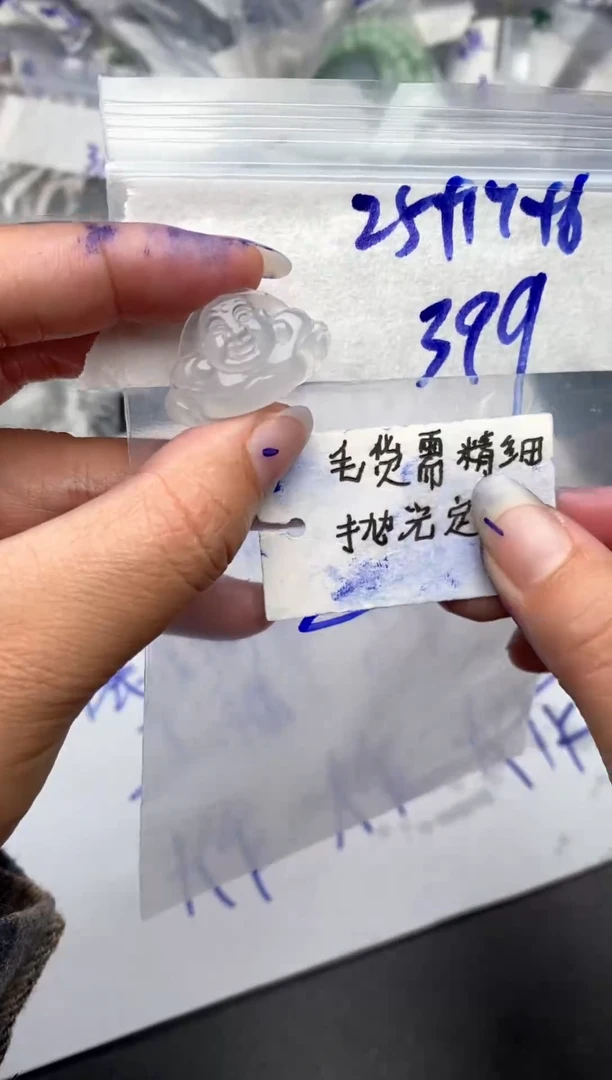 25+17+8
399
毛货需精细
抛光定